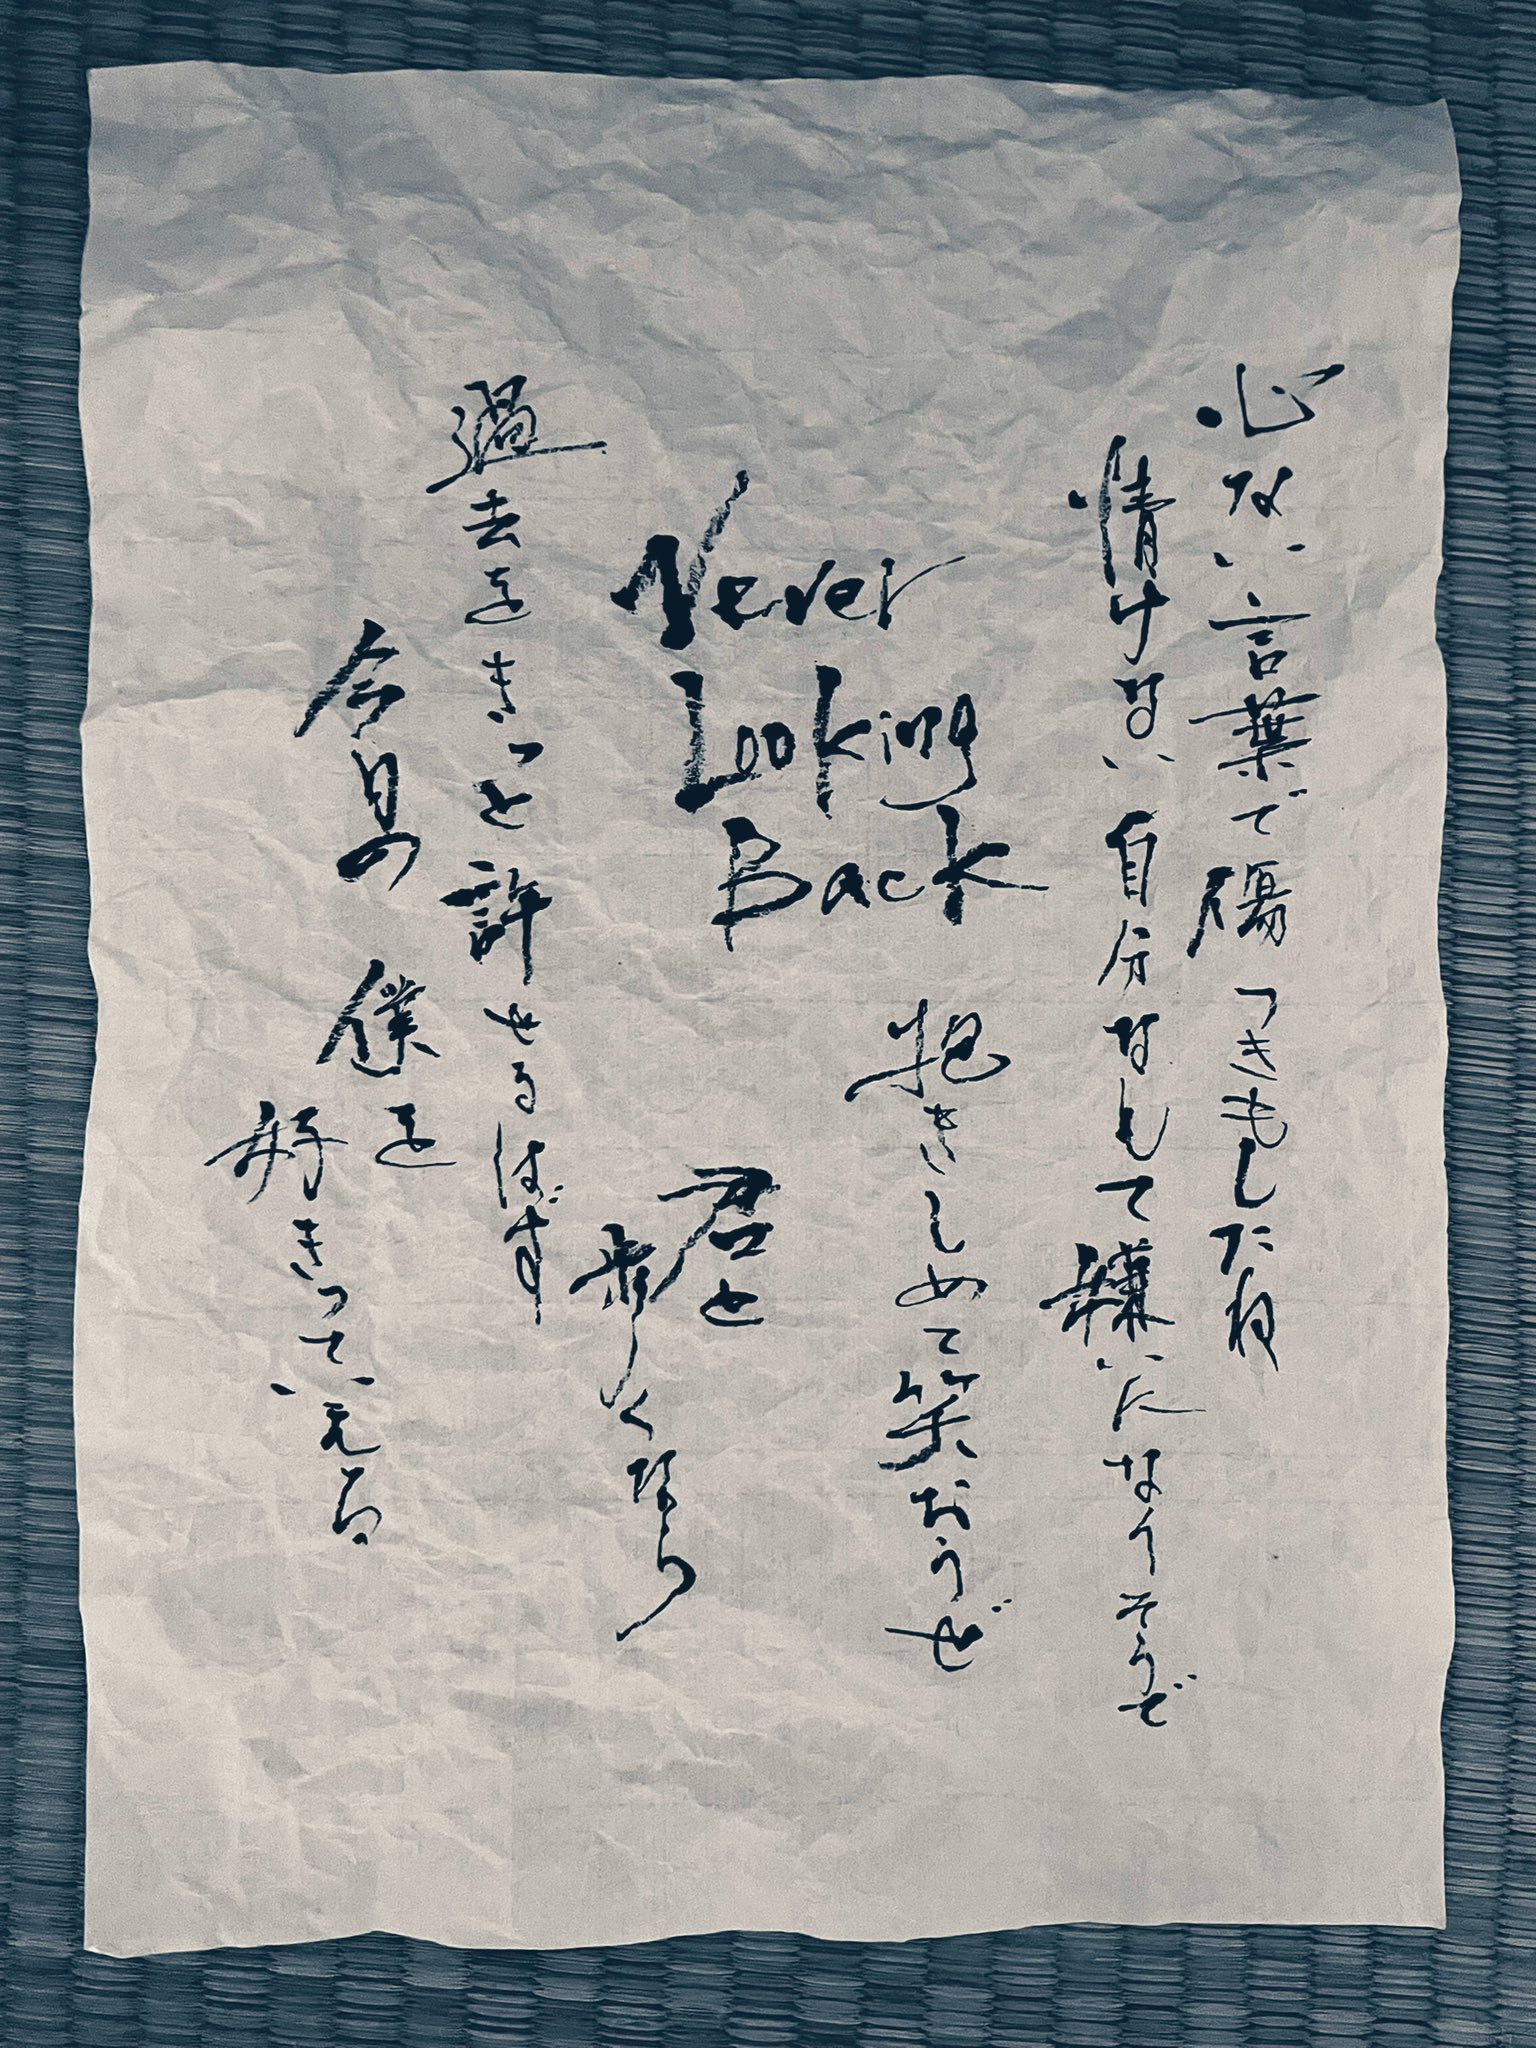 心ない言葉で傷つきもしたね
情けない自分なもて嫌いになりそうで
Never
Looking
Back
抱きしめて笑おうぜ
君と
歩くなら
過去をきっと許せるはず
今日の
僕を
好きっていえる